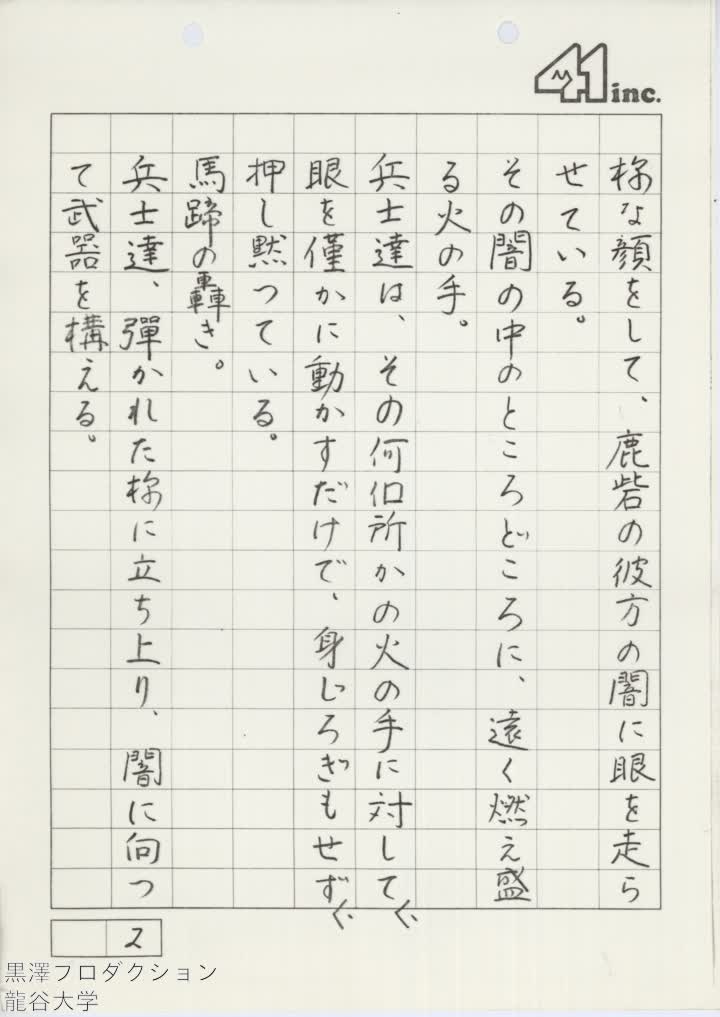 41 inc.
様な顔をして、鹿砦の彼方の闇に眼を走ら
せている。
その闇の中のところどころに、遠く燃え盛
る火の手。
兵士達は、その何個所かの火の手に対して、
眼を僅かに動かすだけで、身じろぎもせず、
押し黙つている。
馬蹄の轟き。
兵士達、彈かれた様に立ち上り、闇に向つ
て武器を構える。
2
黒澤プロダクション
龍谷大学